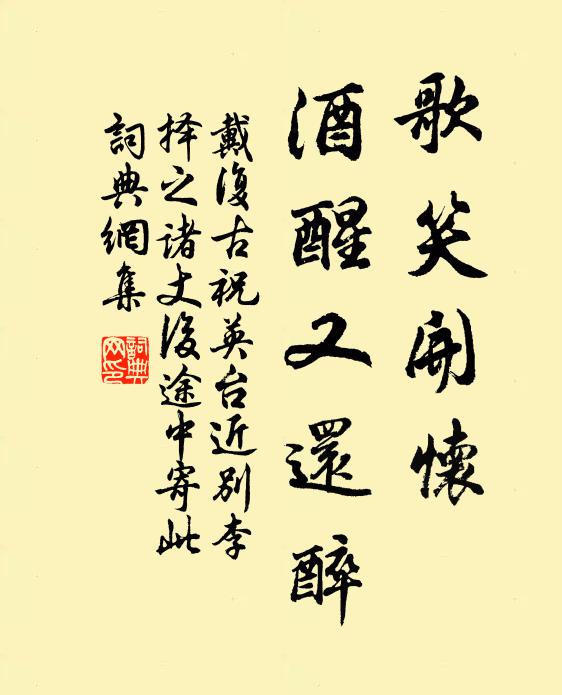 歌笑開懷
酒醒又還醉
戴復古祝英台近別李
择之諸丈後途中寄此
詞典網集
詞典網印